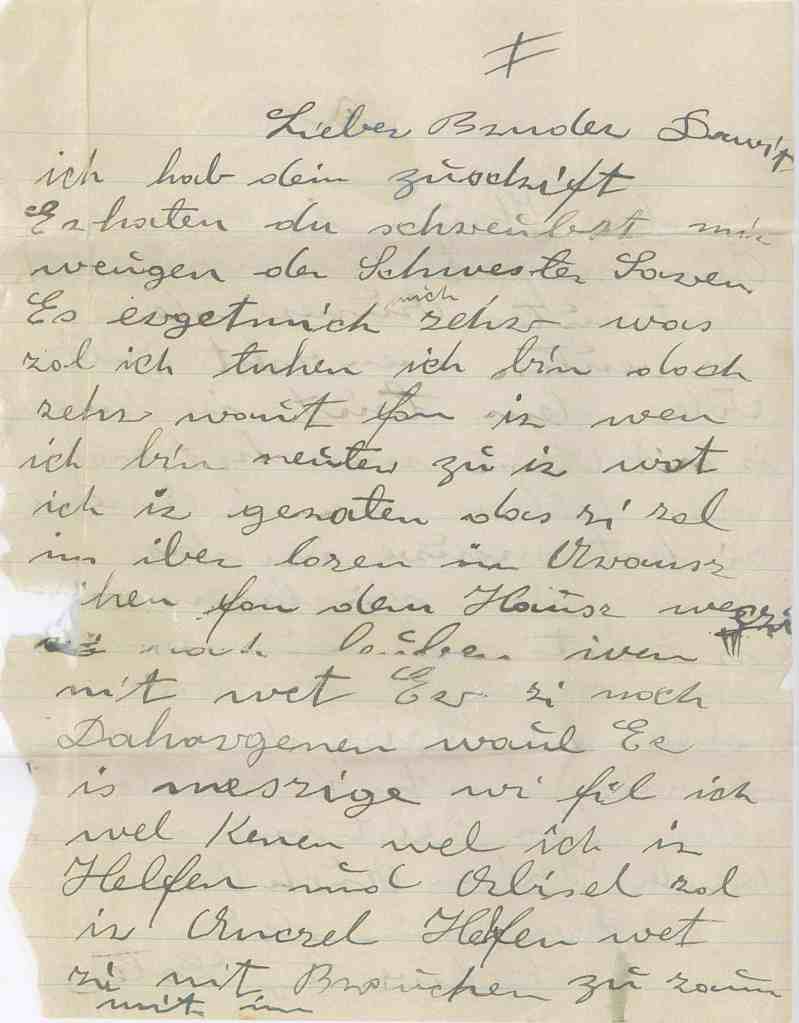 Lieber Bruder Dawit
ich hab dein zuschrift
Erhaten du schreubst mir
weugen der Schwester Sawen
Es ergetmich mich zehr was
zol ich tuhen ich bin doch
zehr waut fon ir wen
ich bin neuter zu ir wot
ich ir geraten das zi zol
im iber lozen un Arausz
ihen fon dem Hausz wegzi
noch iren
nit wet Er zi noch
Dahargenen waul Er
is meszige wi fil ich
wel Kenen wel ich ir
Helfen und Abisel zol
ir Anczel Helfen wet
zi nit Brauchen zu zaun
mit im